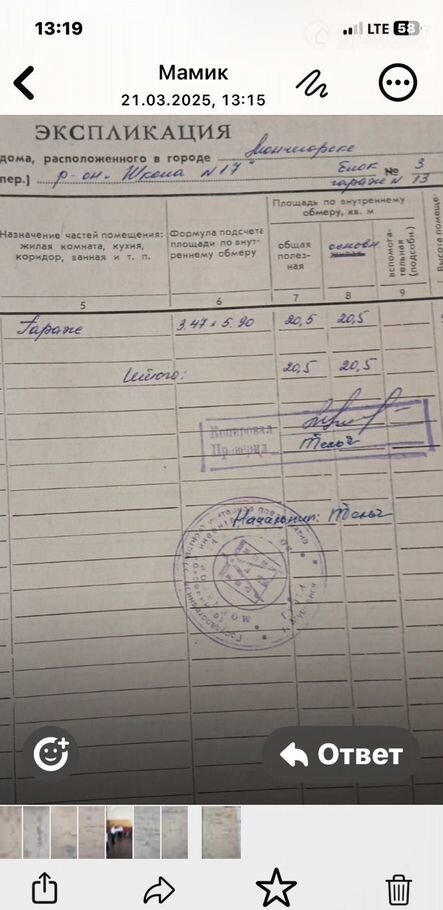 13:19
LTE 53
Мамик
21.03.2025, 13:15
ЭКСПЛИКАЦИЯ
дома, расположенного в городе Мончегорске
пер.] р-он. Школа №17" блок гаражей № 3/13
Площадь по внутреннему обмеру, кв. м
Назначение частей помещения: жилая комната, кухня, коридор, ванная и т. п.
Формула подсчета площади по внутреннему обмеру
общая полезная
основн.
вспомогательная (подсобн.)
Высота помеще-
5 6 7 8 9
Гараж 3.47 x 5.90 20,5 20,5
Итого: 20,5 20,5
Копировал
Проверил
Начальник:
Ответ